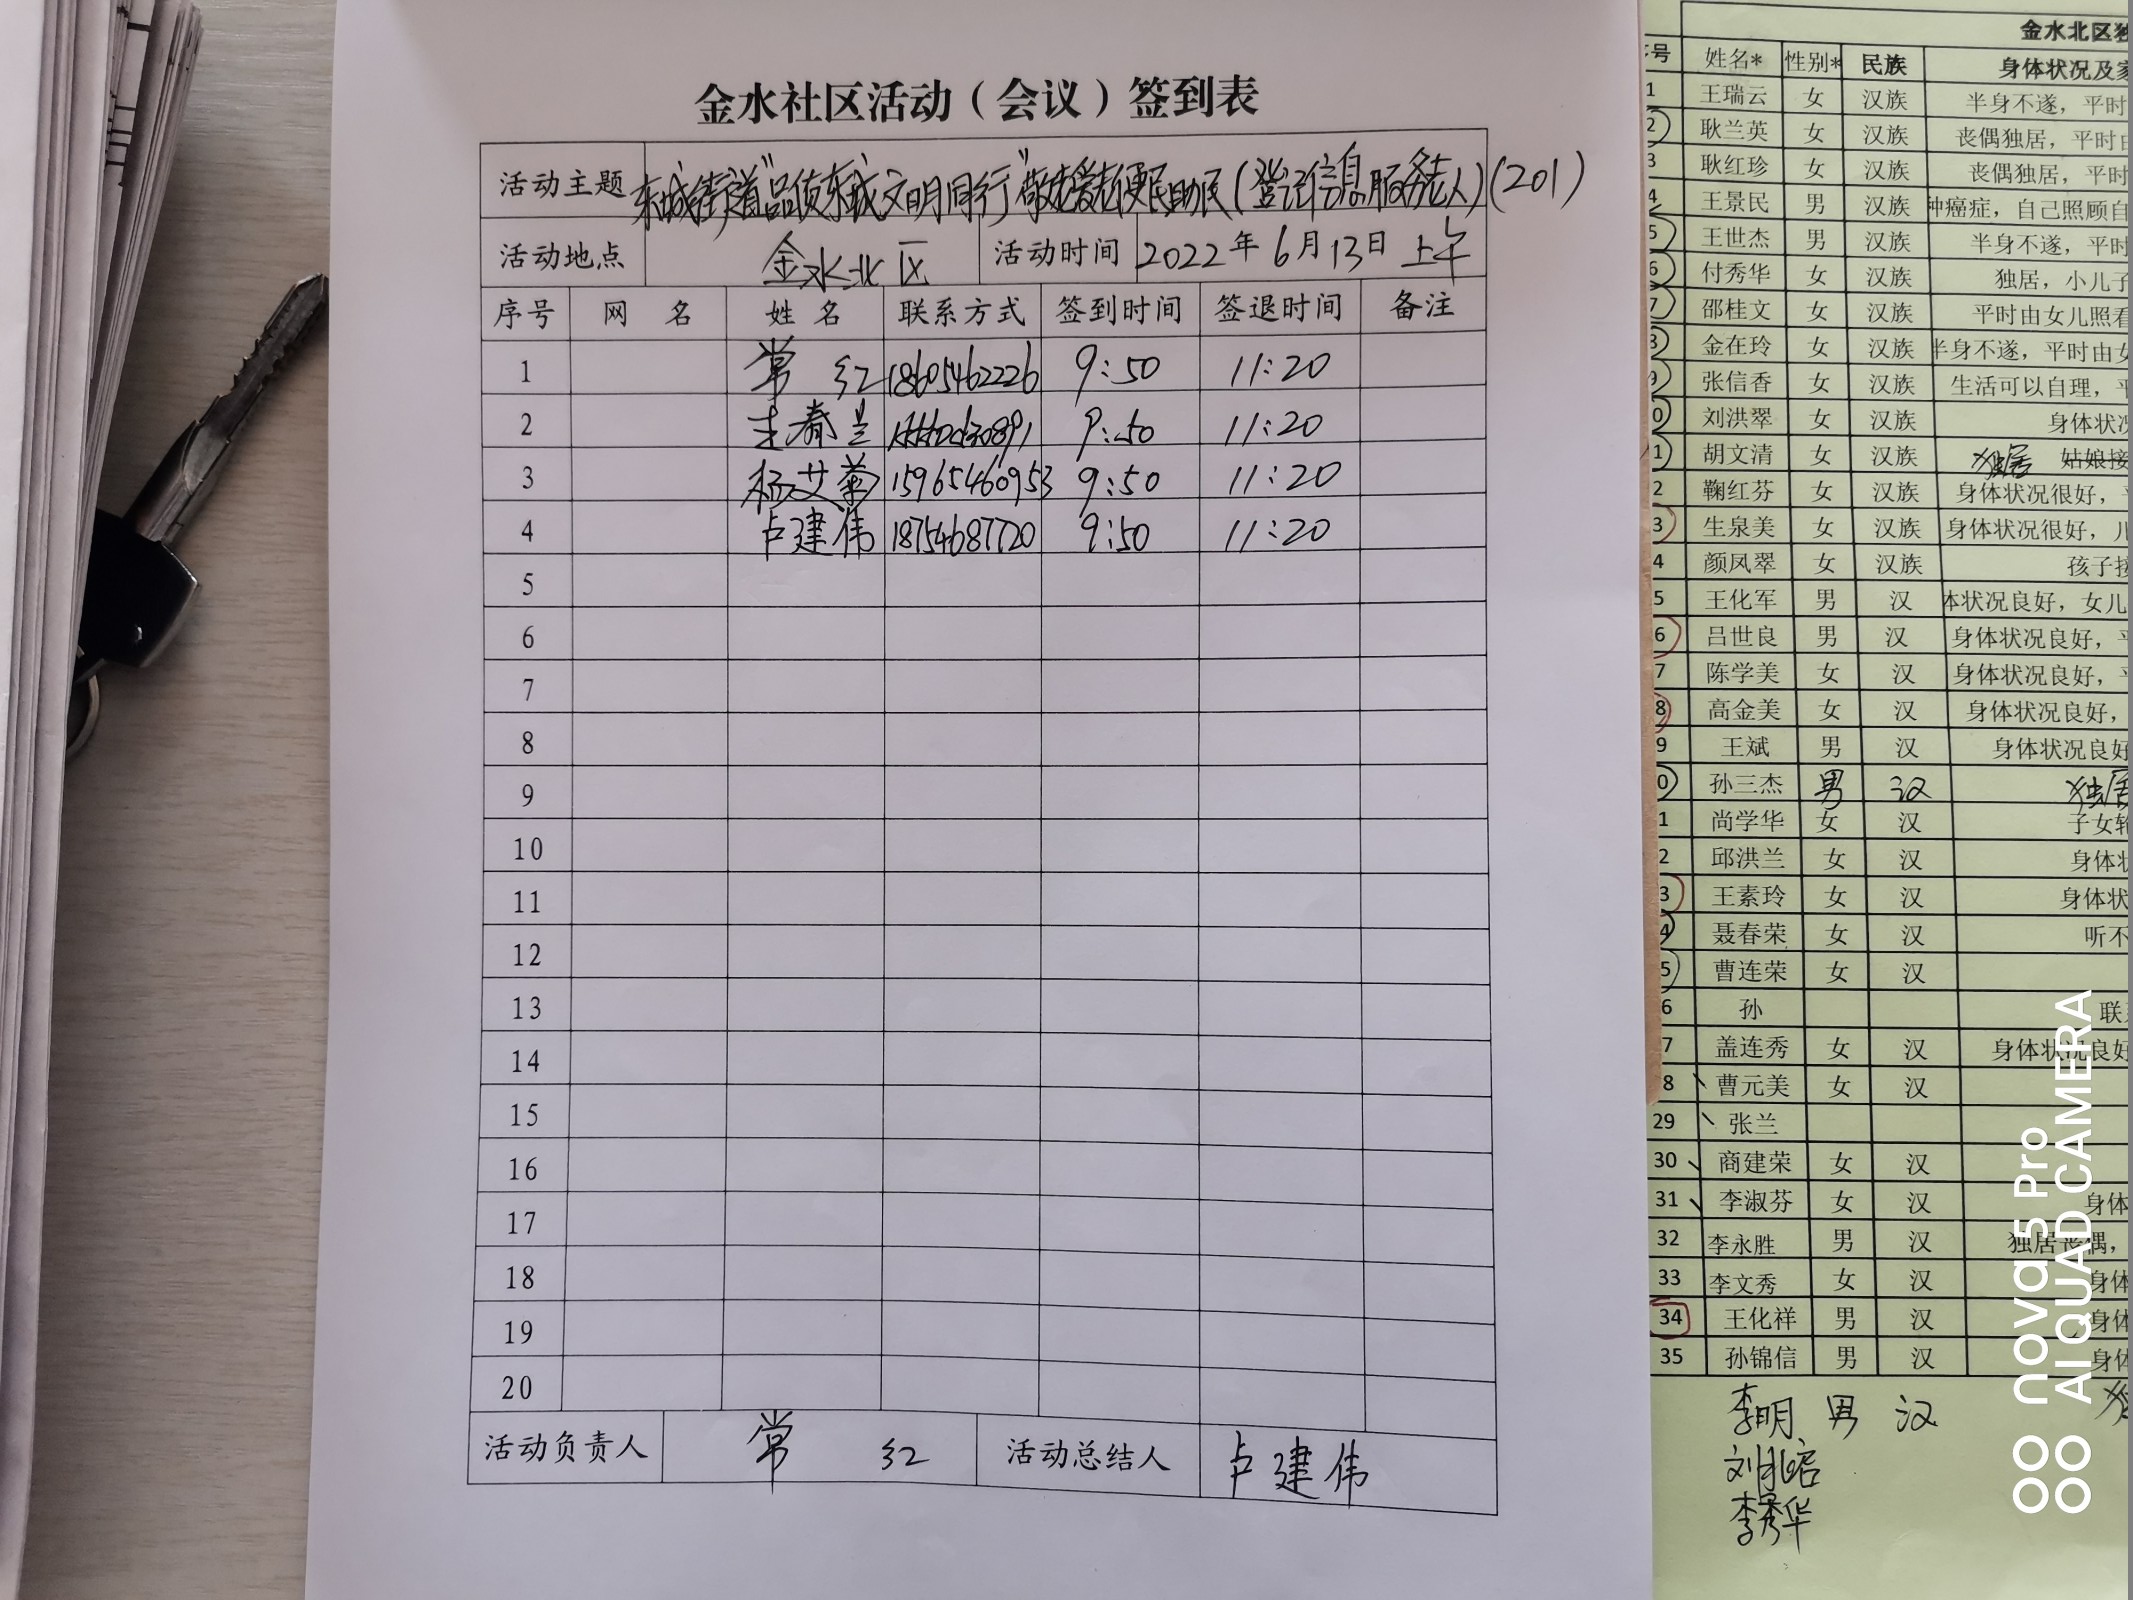 金水社区活动（会议）签到表
活动主题 东城街道"品质东城文明同行"敬老爱老便民助民(登记信息服务老人)(201)
活动地点 金水北区 活动时间 2022年6月13日上午
序号 网 名 姓 名 联系方式 签到时间 签退时间 备注
1 常 红 18605462226 9:50 11:20
2 王春兰 9:50 11:20
3 杨艾菊 15965460953 9:50 11:20
4 卢建伟 18754687720 9:50 11:20
5
6
7
8
9
10
11
12
13
14
15
16
17
18
19
20
活动负责人 常 红 活动总结人 卢建伟
金水北区独
号 姓名* 性别* 民族 身体状况及家
1 王瑞云 女 汉族 半身不遂，平时
2 耿兰英 女 汉族 丧偶独居，平时由
3 耿红珍 女 汉族 丧偶独居，平时
4 王景民 男 汉族 肿癌症，自己照顾自
5 王世杰 男 汉族 半身不遂，平时
6 付秀华 女 汉族 独居，小儿子
7 邵桂文 女 汉族 平时由女儿照看
8 金在玲 女 汉族 半身不遂，平时由女
9 张信香 女 汉族 生活可以自理，平
0 刘洪翠 女 汉族 身体状况
1 胡文清 女 汉族 独居 姑娘接
2 鞠红芬 女 汉族 身体状况很好，平
3 生泉美 女 汉族 身体状况很好，儿
4 颜凤翠 女 汉族 孩子接
5 王化军 男 汉 体状况良好，女儿
6 吕世良 男 汉 身体状况良好，平
7 陈学美 女 汉 身体状况良好，平
8 高金美 女 汉 身体状况良好，
9 王斌 男 汉 身体状况良好
0 孙三杰 男 汉 独居
1 尚学华 女 汉 子女轮
2 邱洪兰 女 汉 身体状
3 王素玲 女 汉 身体状
4 聂春荣 女 汉 听不
5 曹连荣 女 汉
6 孙 联系
7 盖连秀 女 汉 身体状况良好
8 曹元美 女 汉
29 张兰
30 商建荣 女 汉
31 李淑芬 女 汉 身体
32 李永胜 男 汉 独居丧偶，
33 李文秀 女 汉 身体
34 王化祥 男 汉 身体
35 孙锦信 男 汉 身体
李明 男 汉
李秀华
nova 5 Pro
AI QUAD CAMERA